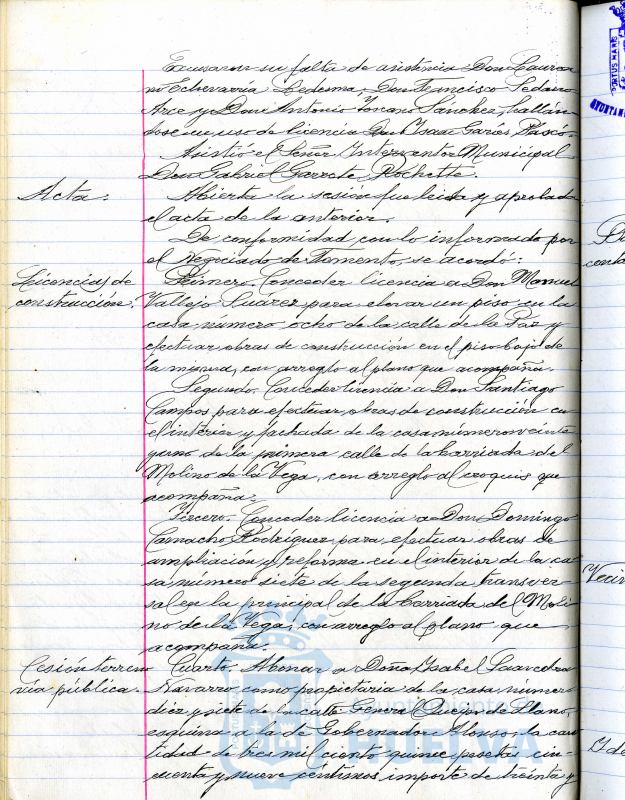 Excusaron su falta de asistencia Don Laurea-
no Echevarría Ledesma, Don Francisco Sedano
Arce y Don Antonio Toscano Sánchez, hallán-
dose en uso de licencia Don Isaac Garós Vasco.
Asistió el Señor Interventor Municipal
Don Gabriel Garrote Rochette.
Acta:
Abierta la sesión fue leida y aprobada
el acta de la anterior.
De conformidad con lo informado por
el Negociado de Fomento, se acordó:
Licencias de
construcción:
Primero. Conceder licencia a Don Manuel
Vallejo Suárez para elevar un piso en la
casa número ocho de la calle de la Paz y
efectuar obras de construcción en el piso bajo de
la misma, con arreglo al plano que acompaña.
Segundo. Conceder licencia a Don Santiago
Campos para efectuar obras de construcción en
el interior y fachada de la casa número veinte
y uno de la primera calle de la barriada del
Molino de la Vega, con arreglo al croquis que
acompaña.
Tercero. Conceder licencia a Don Domingo
Camacho Rodríguez para efectuar obras de
ampliación y reforma en el interior de la ca-
sa número siete de la segunda transver-
sal en la principal de la barriada del Moli-
no de la Vega, con arreglo al plano que
acompaña.
Cesión terreno
vía pública.
Cuarto. Abonar a Doña Isabel Saavedra
Navarro como propietaria de la casa número
diez y siete de la calle General Queipo de Llano,
esquina a la de Gobernador Alonso, la can-
tidad de tres mil ciento quince pesetas cin-
cuenta y nueve céntimos importe de treinta y
PORTUS MARIS
AYUNTAM
HUELVA